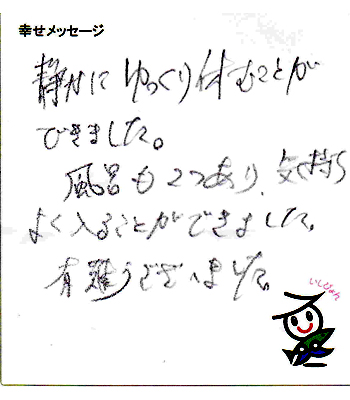 幸せメッセージ
静かにゆっくり休むことが
できました。
風呂も2つあり、気持ち
よく入ることができました。
有難うございました。
いしぴょん